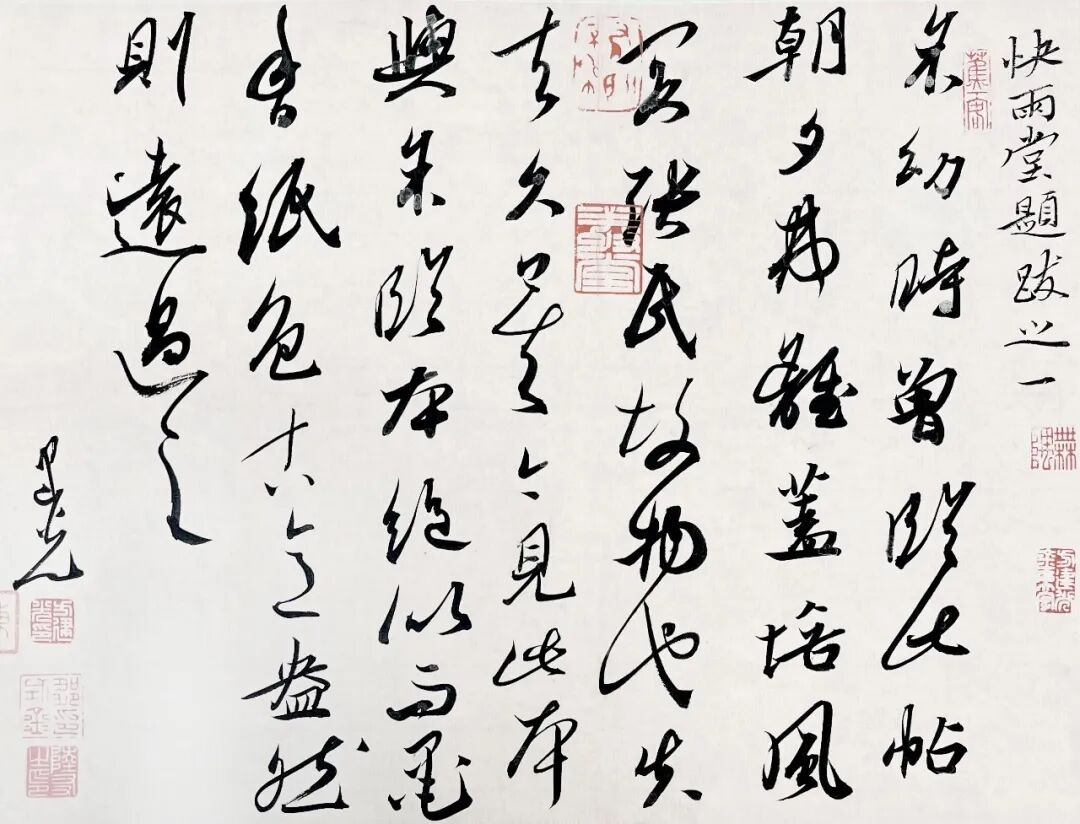 快雨堂題跋之一
余幼時曾臨此帖
朝夕弗離蓋培風
閣張氏故物也失
去久矣今見此本
與余臨本絕似而墨
香紙色古意盎然
則遠過之
建光